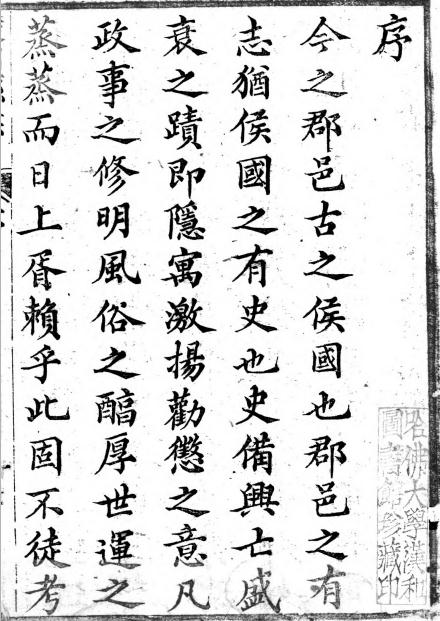 序
今之郡邑古之侯國也郡邑之有
志猶侯國之有史也史備興亡盛
衰之蹟即隱寓激揚勸懲之意凡
政事之修明風俗之醕厚世運之
蒸蒸而日上胥賴乎此固不徒考
哈佛大學漢和
圖書館珍藏印